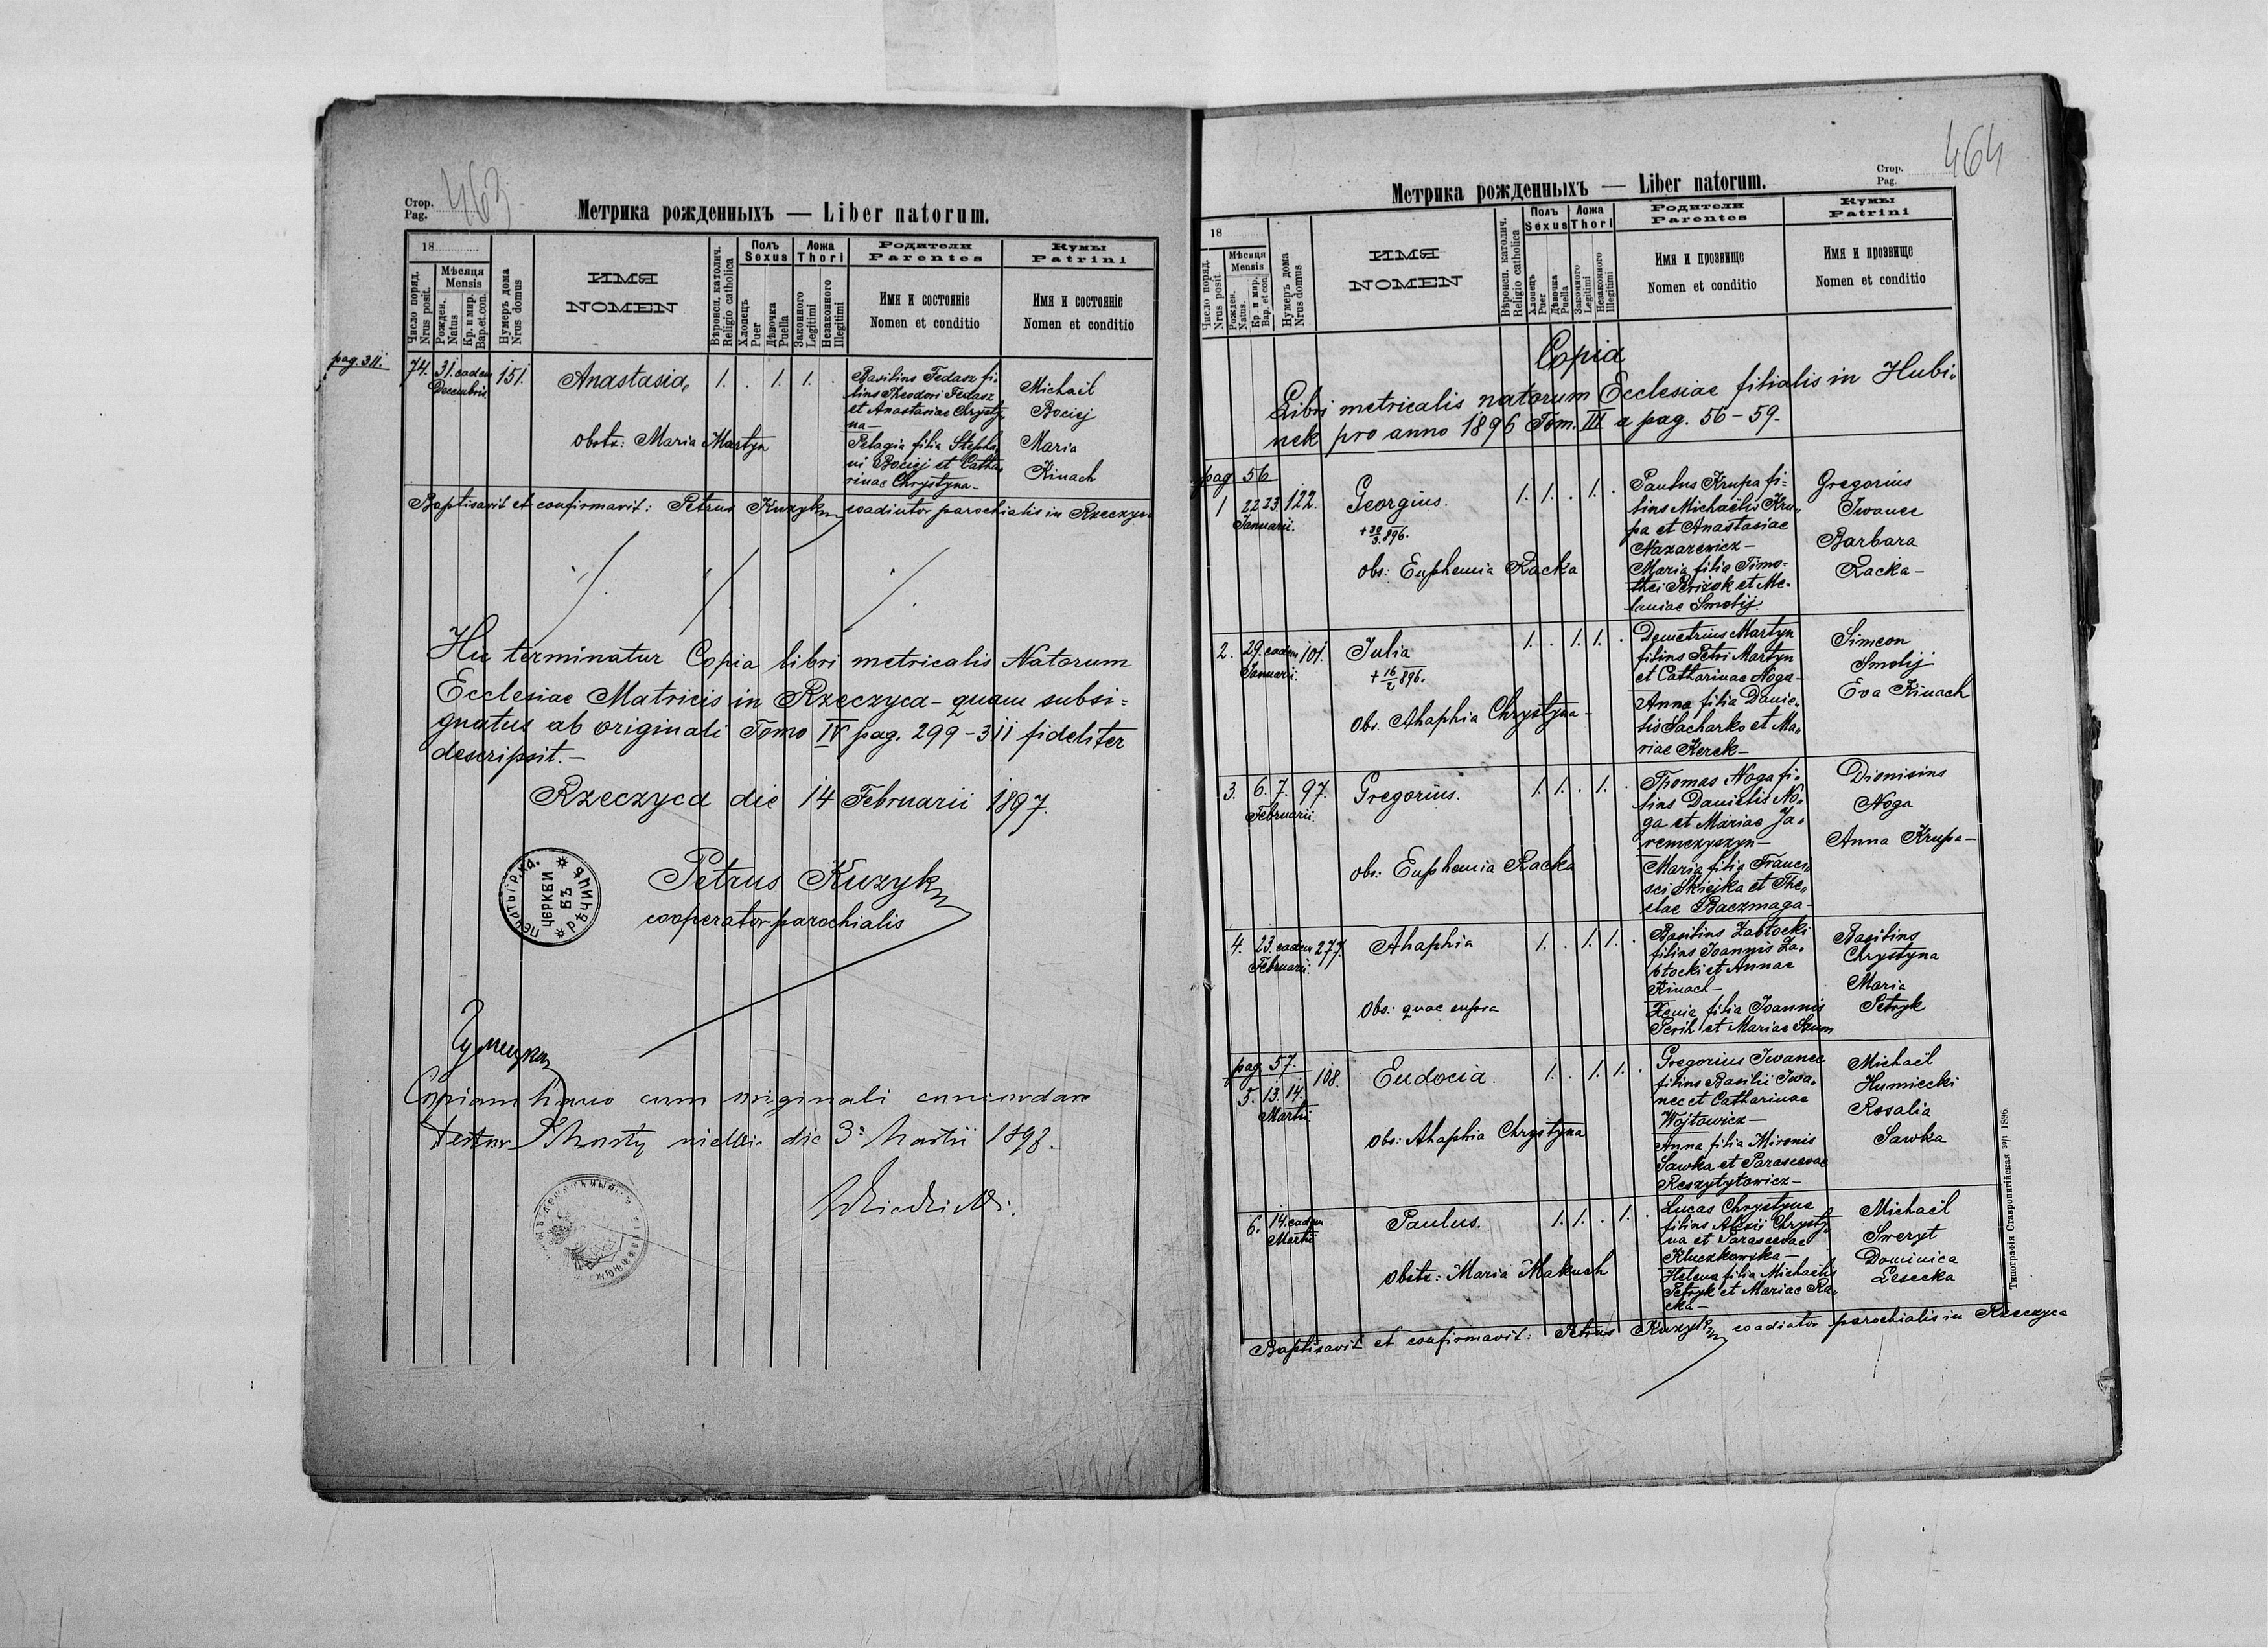 463
Стор.
Pag.
Метрика рожденныхъ — Liber natorum.
18
Число поряд.
Nrus posit.
Мѣсяця
Mensis
Рожден.
Natus
Кр. и мир.
Bap. et con.
Нумеръ дома
Nrus domus
ИМЯ
NOMEN
Вѣроисп. католич.
Religio catholica
Полъ
Sexus
Хлопець
Puer
Дѣвочка
Puella
Ложа
Thori
Законного
Legitimi
Незаконного
Illegitimi
Родители
Parentes
Имя и состояніе
Nomen et conditio
Кумы
Patrini
Имя и состояніе
Nomen et conditio
pag. 311.
74. 31. eadem 151. Anastasia, 1. . 1. 1. .
Decembris
Basilius Fedasz fi-
lius Theodori Fedasz
et Anastasiae Chrysty-
na-
Pelagia filia Stepha-
ni Bociej et Catha-
rinae Chrystyna-
Michaël
Bociej
Maria
Kinach
obstr: Maria Martyn
Baptisavit et confirmavit: Petrus Kuzyk coadiutor parochialis in Rzeczyca
Hic terminatur Copia libri metricalis Natorum
Ecclesiae Matricis in Rzeczyca - quam subsi=
gnatus ab originali Tomo IV pag. 299-311 fideliter
descripsit.-
Rzeczyca die 14 Februarii 1897.
Petrus Kuzyk
cooperator parochialis
ЦЕРКВИ
ВЪ
Copiam hanc cum originali concordare
testor
die 3 Martii 1897.
464
Стор.
Pag.
Метрика рожденныхъ — Liber natorum.
18
Число поряд.
Nrus posit.
Мѣсяця
Mensis
Рожден.
Natus.
Кр. и мир.
Bap. et con
Нумеръ дома
Nrus domus
ИМЯ
NOMEN
Вѣроисп. католич.
Religio catholica
Полъ
Sexus
Хлопець
Puer
Дѣвочка
Puella
Ложа
Thori
Законного
Legitimi
Незаконного
Illegitimi
Родители
Parentes
Имя и прозвище
Nomen et conditio
Кумы
Patrini
Имя и прозвище
Nomen et conditio
Copia
Libri metricalis natorum Ecclesiae filialis in Hubi-
nek pro anno 1896 Tom. III a pag. 56-59-
pag 56
1 22 23. 122. Georgius. 1. 1. . 1. .
Januarii.
+ 30/3. 896.
obs: Euphemia Racka
Paulus Krupa fi=
lius Michaëlis Kru-
pa et Anastasiae
Nazarewicz-
Maria filia Timo-
thei Perižok et Me-
laniae Smolij.
Gregorius
Iwanec
Barbara
Racka-
2. 29. eadem 101. Julia 1. . 1. 1. .
Januarii.
+ 16/2 896.
obs. Ahaphia Chrystyna-
Demetrius Martyn
filius Petri Martyn
et Catharinae Noga-
Anna filia Danie-
lis Sacharko et Ma-
riae Kerek-
Simeon
Smolij
Eva Kinach
3. 6. 7. 97. Gregorius. 1. 1. . 1. .
Februarii.
obs: Euphemia Racka
Thomas Noga fi-
lius Danielis No-
ga et Mariae Ja-
remczyszyn-
Maria filia Franci-
sci Skiejka et The-
clae Baczmaga-
Dionisius
Noga
Anna Krupa-
4. 23. eadem 277. Ahaphia 1. . 1. 1. .
Februarii.
Obs: quae supra
Basilius Zabłocki
filius Joannis Za-
błocki et Annae
Kinach-
Xenia filia Joannis
Perih et Mariae Szum
Basilius
Chrystyna
Maria
Petryk
pag. 57.
5. 13. 14. 108. Eudocia. 1. . 1. 1. .
Martii
Obs: Ahaphia Chrystyna
Gregorius Iwanec
filius Basilii Iwa-
nec et Catharinae
Wojtowicz-
Anna filia Mironis
Sawka et Parascevae
Reszytyłowicz-
Michaël
Humiecki
Rosalia
Sawka
6. 14. eadem Paulus. 1. 1. . 1. .
Martii
Obstr: Maria Makuch
Lucas Chrystyna
filius Alexii Chrysty-
na et Parascevae
Kluczkowska-
Helena filia Michaëlis
Petryk et Mariae Ra-
cka-
Michaël
Sweryt
Dominica
Lesecka
Baptisavit et confirmavit: Petrus Kuzyk coadiutor parochialis in Rzeczyca
Типографія Ставропигійская зар 1896.